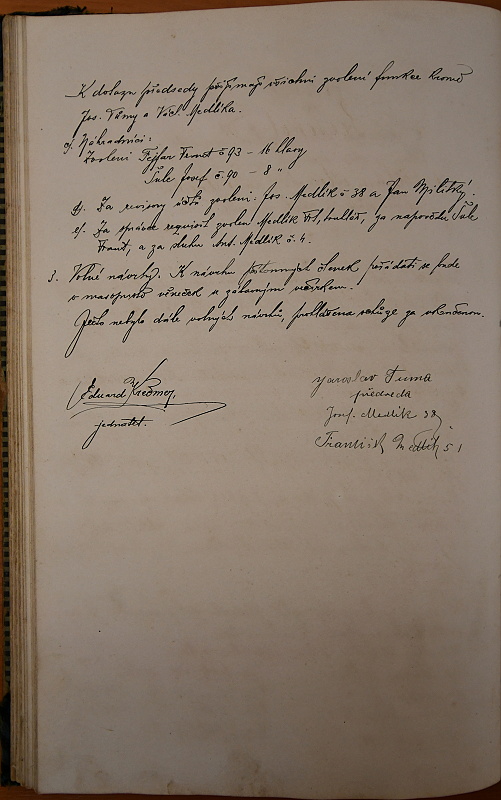 K dotazu předsedy přijímají všichni zvolení funkce kromě
Jos. Tůmy a Václ. Medlíka.
c/. Náhradníci:
Zvoleni Fejfar Ernest č 93 - 16 hlasy
Šule Josef č. 90 - 8 "
d/. Za revisory účtů zvoleni: Jos. Medlík č 38 a Jan Militký.
e/. Za správce requisit zvolen Medlík za nápovědu Šule
Frant, a za sluhu Ant. Medlík č. 4.
3. Volné návrhy. K návrhu přítomných členek pořádati se bude
v masopustě věneček s zábavným večírkem.
Ježto nebylo dále volných návrhů, prohlášena schůze za ukončenou.
Eduard Kněžmej,
jednatel.
Jaroslav Tuma
předseda
Josef. Medlík 38
František Medlík 51